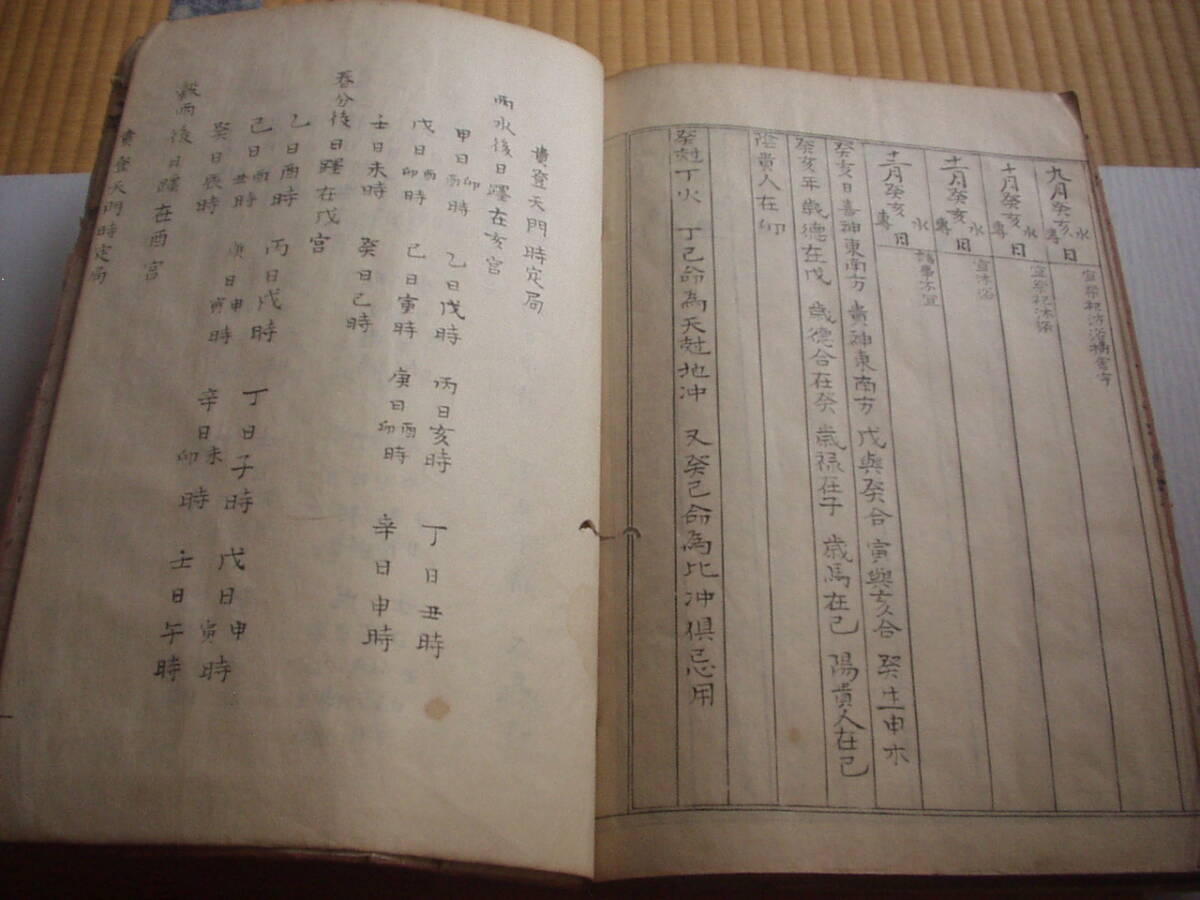 九月癸亥水專日 宜祭祀沐浴掃舍宇
十月癸亥水專日 宜祭祀沐浴
十一月癸亥水專日 宜沐浴
十二月癸亥水專日 諸事不宜
癸亥日喜神東南方 貴神東南方 戊與癸合 寅與亥合 癸生申木
癸亥年歲德在戊 歲德合在癸 歲禄在子 歲馬在巳 陽貴人在巳
陰貴人在卯
癸尅丁火 丁巳命為天尅地冲 又癸巳命為比冲俱忌用
貴登天門時定局
雨水後日躔在亥宮
甲日卯酉時 乙日戌時 丙日亥時 丁日丑時
戊日卯酉時 己日寅時 庚日卯酉時 辛日申時
壬日未時 癸日巳時
春分後日躔在戌宮
乙日酉時 丙日戌時 丁日子時 戊日寅申時
己日丑酉時 庚日寅申時 辛日卯未時 壬日午時
癸日辰時
穀雨後日躔在酉宮
貴登天門時定局